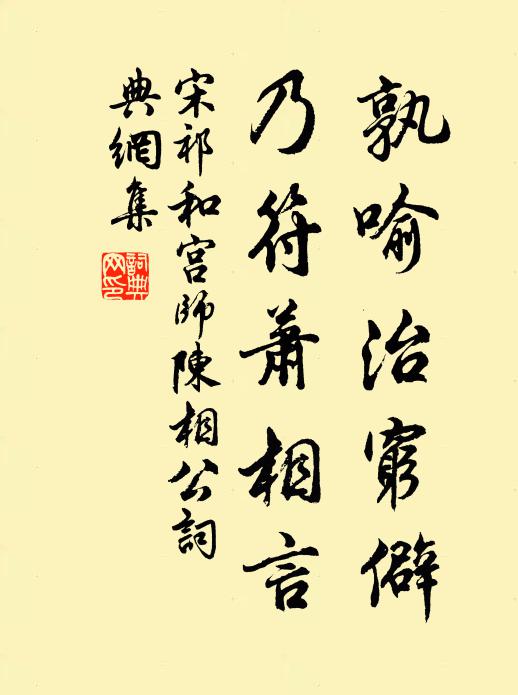 孰喻治窮僻
乃符蕭相言
宋祁和宫師陳相公詞
典網集
詞典
网印